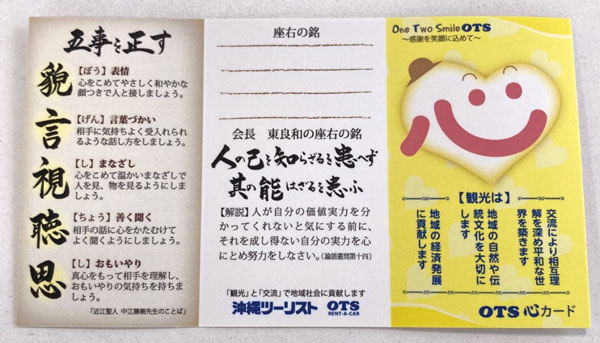 五事を正す
貌
【ぼう】表情
心をこめてやさしく和やかな
顔つきで人と接しましょう。
言
【げん】言葉づかい
相手に気持ちよく受入れられ
るような話し方をしましょう。
視
【し】まなざし
心をこめて温かいまなざしで
人を見、物を見るようにしま
しょう。
聴
【ちょう】善く聞く
相手の話に心をかたむけて
よく聞くようにしましょう。
思
【し】おもいやり
真心をもって相手を理解し、
おもいやりの気持ちを持ちま
しょう。
「近江聖人 中江藤樹先生のことば」
座右の銘
会長 東良和の座右の銘
人の己を知らざるを患へず
其の能はざるを患ふ
【解説】人が自分の価値実力を分
かってくれないと気にする前に、
それを成し得ない自分の実力を心
にとめ努力をしなさい。（論語憲問第十四）
「観光」と「交流」で地域社会に貢献します
沖縄ツーリスト OTS
RENT-A-CAR
One Two Smile OTS
～感謝を笑顔に込めて～
【観光は】
交流により相互理
解を深め平和な世
界を築きます
地域の自然や伝
統文化を大切に
します
地域の経済発展
に貢献します
OTS 心カード